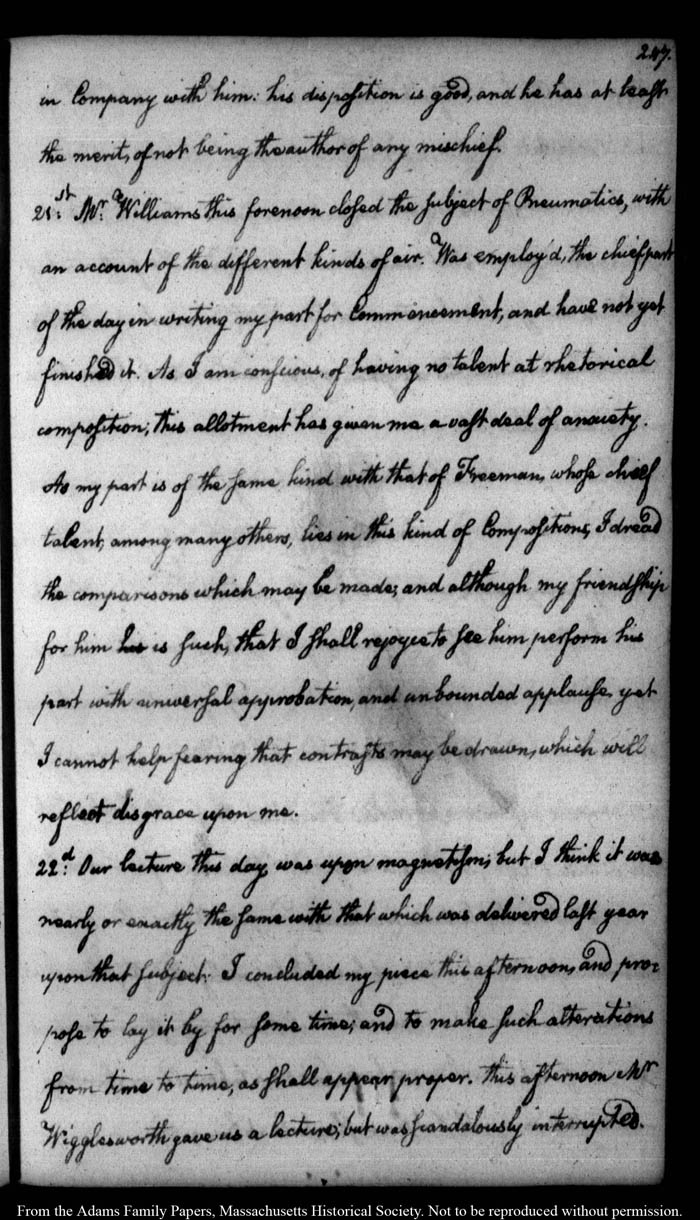 247.
in Company with him: his disposition is good, and he has at least
the merit, of not being the author of any mischief.
21st: Mr. Williams this forenoon closed the subject of Pneumatics, with
an account of the different kinds of air. Was employ'd, the chief part
of the day in writing my part for Commencement, and have not yet
finished it. As I am conscious, of having no talent at rhetorical
composition; this allotment has given me a vast deal of anxiety.
As my part is of the same kind with that of Freeman, whose chief
talent, among many others, lies in this kind of Compositions, I dread
the comparisons which may be made; and although my friendship
for him is such, that I shall rejoyce to see him perform his
part with universal approbation, and unbounded applause, yet
I cannot help fearing that contrasts may be drawn, which will
reflect disgrace upon me.
22d: Our lecture this day, was upon magnetism; but I think it was
nearly or exactly the same with that which was delivered last year
upon that subject. I concluded my piece this afternoon, and pro=
pose to lay it by for some time; and to make such alterations
from time to time, as shall appear proper. This afternoon Mr
Wigglesworth gave us a lecture; but was scandalously interrupted.
From the Adams Family Papers, Massachusetts Historical Society. Not to be reproduced without permission.